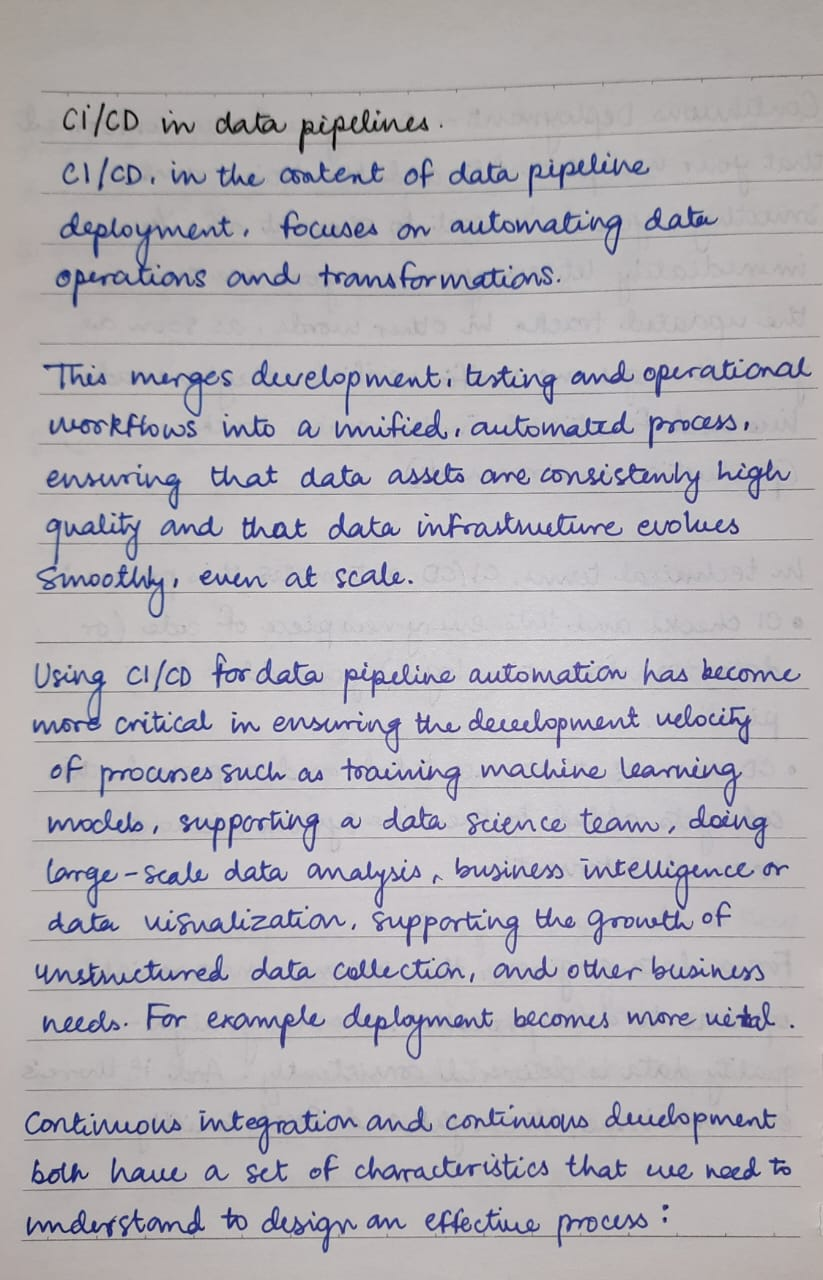 CI/CD in data pipelines.
CI/CD, in the content of data pipeline
deployment, focuses on automating data
operations and transformations.
This merges development, testing and operational
workflows into a unified, automated process,
ensuring that data assets are consistenly high
quality and that data infrastructure evolves
smoothly, even at scale.
Using CI/CD for data pipeline automation has become
more critical in ensuring the development velocity
of processes such as training machine learning
models, supporting a data science team, doing
large-scale data analysis, business intelligence or
data visualization, supporting the growth of
unstructured data collection, and other business
needs. For example deployment becomes more vital.
Continuous integration and continuous development
both have a set of characteristics that we need to
understand to design an effective process: